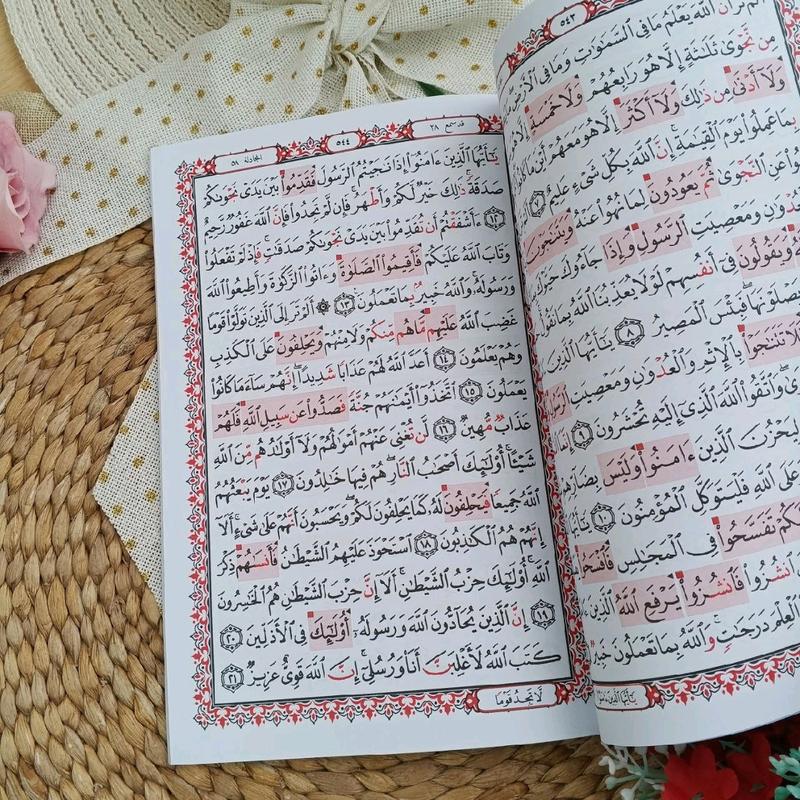 ٥٤٣
أَلَمْ تَرَ أَنَّ ٱللَّهَ يَعْلَمُ مَا فِى ٱلسَّمَٰوَٰتِ وَمَا فِى ٱلْأَرْضِ
مِن نَّجْوَىٰ ثَلَٰثَةٍ إِلَّا هُوَ رَابِعُهُمْ وَلَا خَمْسَةٍ
وَلَآ أَدْنَىٰ مِن ذَٰلِكَ وَلَآ أَكْثَرَ إِلَّا هُوَ مَعَهُمْ أَيْنَ مَا كَانُوا۟
بِمَا عَمِلُوا۟ يَوْمَ ٱلْقِيَٰمَةِ إِنَّ ٱللَّهَ بِكُلِّ شَىْءٍ عَلِيمٌ ٧
عَنِ ٱلنَّجْوَىٰ ثُمَّ يَعُودُونَ لِمَا نُهُوا۟ عَنْهُ وَيَتَنَٰجَوْنَ
وَمَعْصِيَتِ ٱلرَّسُولِ وَإِذَا جَآءُوكَ حَيَّوْكَ
وَيَقُولُونَ فِىٓ أَنفُسِهِمْ لَوْلَا يُعَذِّبُنَا ٱللَّهُ بِمَا نَقُولُ
يَصْلَوْنَهَا فَبِئْسَ ٱلْمَصِيرُ ٨ يَٰٓأَيُّهَا ٱلَّذِينَ
فَلَا تَتَنَٰجَوْا۟ بِٱلْإِثْمِ وَٱلْعُدْوَٰنِ وَمَعْصِيَتِ ٱلرَّسُولِ
وَٱتَّقُوا۟ ٱللَّهَ ٱلَّذِىٓ إِلَيْهِ تُحْشَرُونَ ٩ إِنَّمَا
لِيَحْزُنَ ٱلَّذِينَ ءَامَنُوا۟ وَلَيْسَ بِضَآرِّهِمْ
وَعَلَى ٱللَّهِ فَلْيَتَوَكَّلِ ٱلْمُؤْمِنُونَ ١٠ يَٰٓأَيُّهَا
لَكُمْ تَفَسَّحُوا۟ فِى ٱلْمَجَٰلِسِ فَٱفْسَحُوا۟
ٱنشُزُوا۟ فَٱنشُزُوا۟ يَرْفَعِ ٱللَّهُ ٱلَّذِينَ
ٱلْعِلْمَ دَرَجَٰتٍ وَٱللَّهُ بِمَا تَعْمَلُونَ خَبِيرٌ
يَٰٓأَيُّهَا ٱلَّذِينَ ءَامَنُوٓا۟
قد سمع ٢٨
٥٤٤
المجادلة ٥٨
يَٰٓأَيُّهَا ٱلَّذِينَ ءَامَنُوٓا۟ إِذَا نَٰجَيْتُمُ ٱلرَّسُولَ فَقَدِّمُوا۟ بَيْنَ يَدَىْ نَجْوَىٰكُمْ
صَدَقَةً ذَٰلِكَ خَيْرٌ لَّكُمْ وَأَطْهَرُ فَإِن لَّمْ تَجِدُوا۟ فَإِنَّ ٱللَّهَ غَفُورٌ رَّحِيمٌ
١٢ ءَأَشْفَقْتُمْ أَن تُقَدِّمُوا۟ بَيْنَ يَدَىْ نَجْوَىٰكُمْ صَدَقَٰتٍ فَإِذْ لَمْ تَفْعَلُوا۟
وَتَابَ ٱللَّهُ عَلَيْكُمْ فَأَقِيمُوا۟ ٱلصَّلَوٰةَ وَءَاتُوا۟ ٱلزَّكَوٰةَ وَأَطِيعُوا۟ ٱللَّهَ
وَرَسُولَهُۥ وَٱللَّهُ خَبِيرٌۢ بِمَا تَعْمَلُونَ ١٣ ۞ أَلَمْ تَرَ إِلَى ٱلَّذِينَ تَوَلَّوْا۟ قَوْمًا
غَضِبَ ٱللَّهُ عَلَيْهِم مَّا هُم مِّنكُمْ وَلَا مِنْهُمْ وَيَحْلِفُونَ عَلَى ٱلْكَذِبِ
وَهُمْ يَعْلَمُونَ ١٤ أَعَدَّ ٱللَّهُ لَهُمْ عَذَابًا شَدِيدًا إِنَّهُمْ سَآءَ مَا كَانُوا۟
يَعْمَلُونَ ١٥ ٱتَّخَذُوٓا۟ أَيْمَٰنَهُمْ جُنَّةً فَصَدُّوا۟ عَن سَبِيلِ ٱللَّهِ فَلَهُمْ
عَذَابٌ مُّهِينٌ ١٦ لَّن تُغْنِىَ عَنْهُمْ أَمْوَٰلُهُمْ وَلَآ أَوْلَٰدُهُم مِّنَ ٱللَّهِ
شَيْـًٔا أُو۟لَٰٓئِكَ أَصْحَٰبُ ٱلنَّارِ هُمْ فِيهَا خَٰلِدُونَ ١٧ يَوْمَ يَبْعَثُهُمُ
ٱللَّهُ جَمِيعًا فَيَحْلِفُونَ لَهُۥ كَمَا يَحْلِفُونَ لَكُمْ وَيَحْسَبُونَ أَنَّهُمْ عَلَىٰ شَىْءٍ أَلَآ
إِنَّهُمْ هُمُ ٱلْكَٰذِبُونَ ١٨ ٱسْتَحْوَذَ عَلَيْهِمُ ٱلشَّيْطَٰنُ فَأَنسَىٰهُمْ ذِكْرَ
ٱللَّهِ أُو۟لَٰٓئِكَ حِزْبُ ٱلشَّيْطَٰنِ أَلَآ إِنَّ حِزْبَ ٱلشَّيْطَٰنِ هُمُ ٱلْخَٰسِرُونَ
١٩ إِنَّ ٱلَّذِينَ يُحَآدُّونَ ٱللَّهَ وَرَسُولَهُۥٓ أُو۟لَٰٓئِكَ فِى ٱلْأَذَلِّينَ ٢٠
كَتَبَ ٱللَّهُ لَأَغْلِبَنَّ أَنَا۠ وَرُسُلِىٓ إِنَّ ٱللَّهَ قَوِىٌّ عَزِيزٌ ٢١
لَّا تَجِدُ قَوْمًا